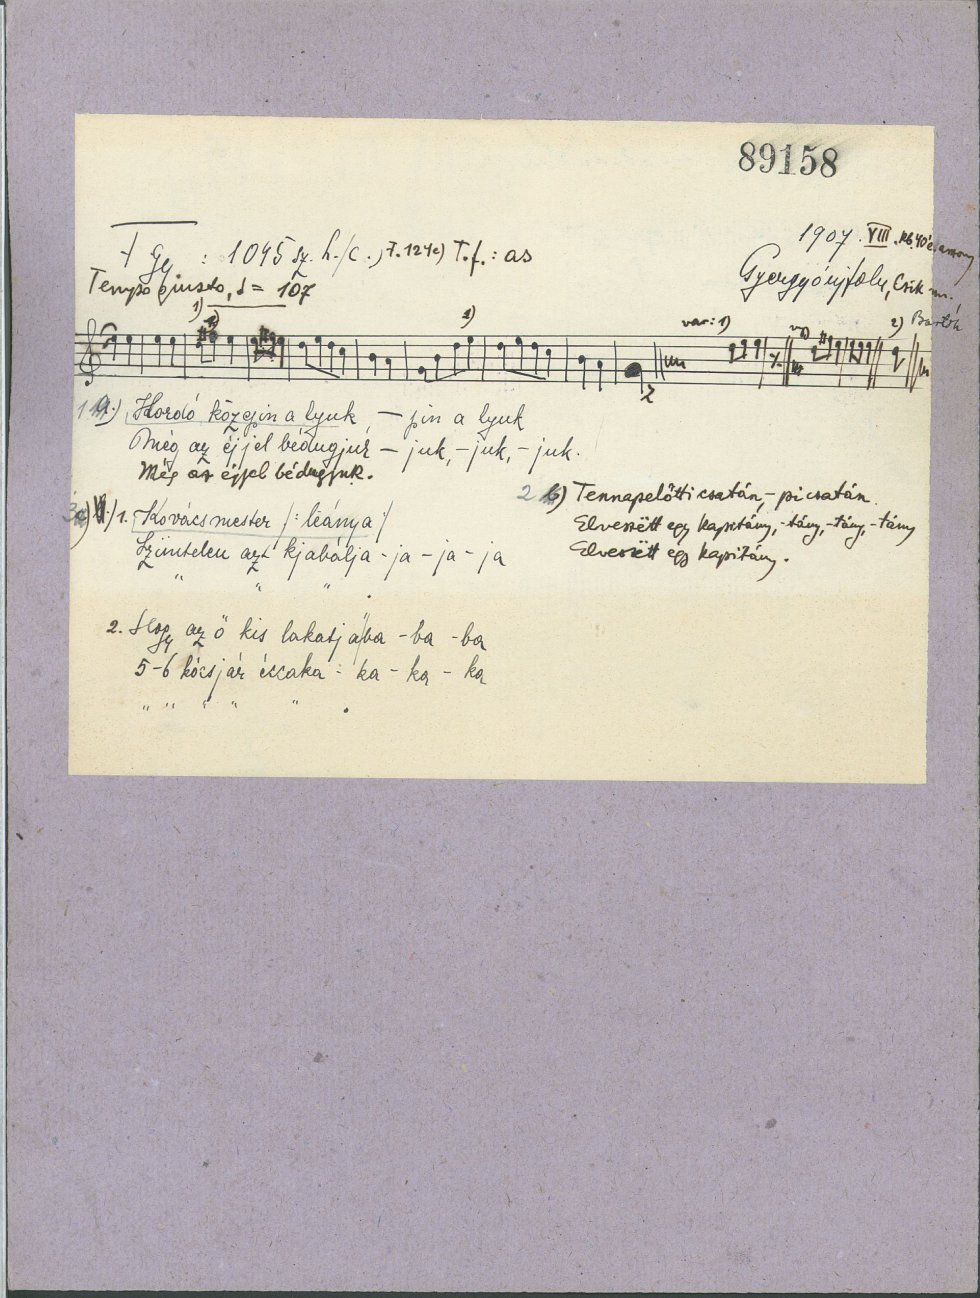 89158
1907. VIII. kb 40 é. asszony
1045 sz. h./c., F. 124c) T.f.: as
Gyergyóújfalu, Csík m.,
Tempo giusto, = 107
Bartók
1) 2) var: 1) 2)
a.) Hordó közepin a lyuk — pin a lyuk
Még az éjjel bédugjuk — juk, - juk, - juk.
Még az éjjel bédugjuk.
2 b) Tennapelőtti csatán, - pi csatán.
Elveszëtt egy kapitány, - tány, - tány, - tány
Elveszëtt egy kapitány.
c) 1. Kovácsmester /: leánya :/
Szüntelen azt kjabálja - ja - ja - ja
" " " .
2. Hogy az ő kis lakatjába - ba - ba
5-6 kócsjár éccaka - ka - ka - ka
" " " " " .